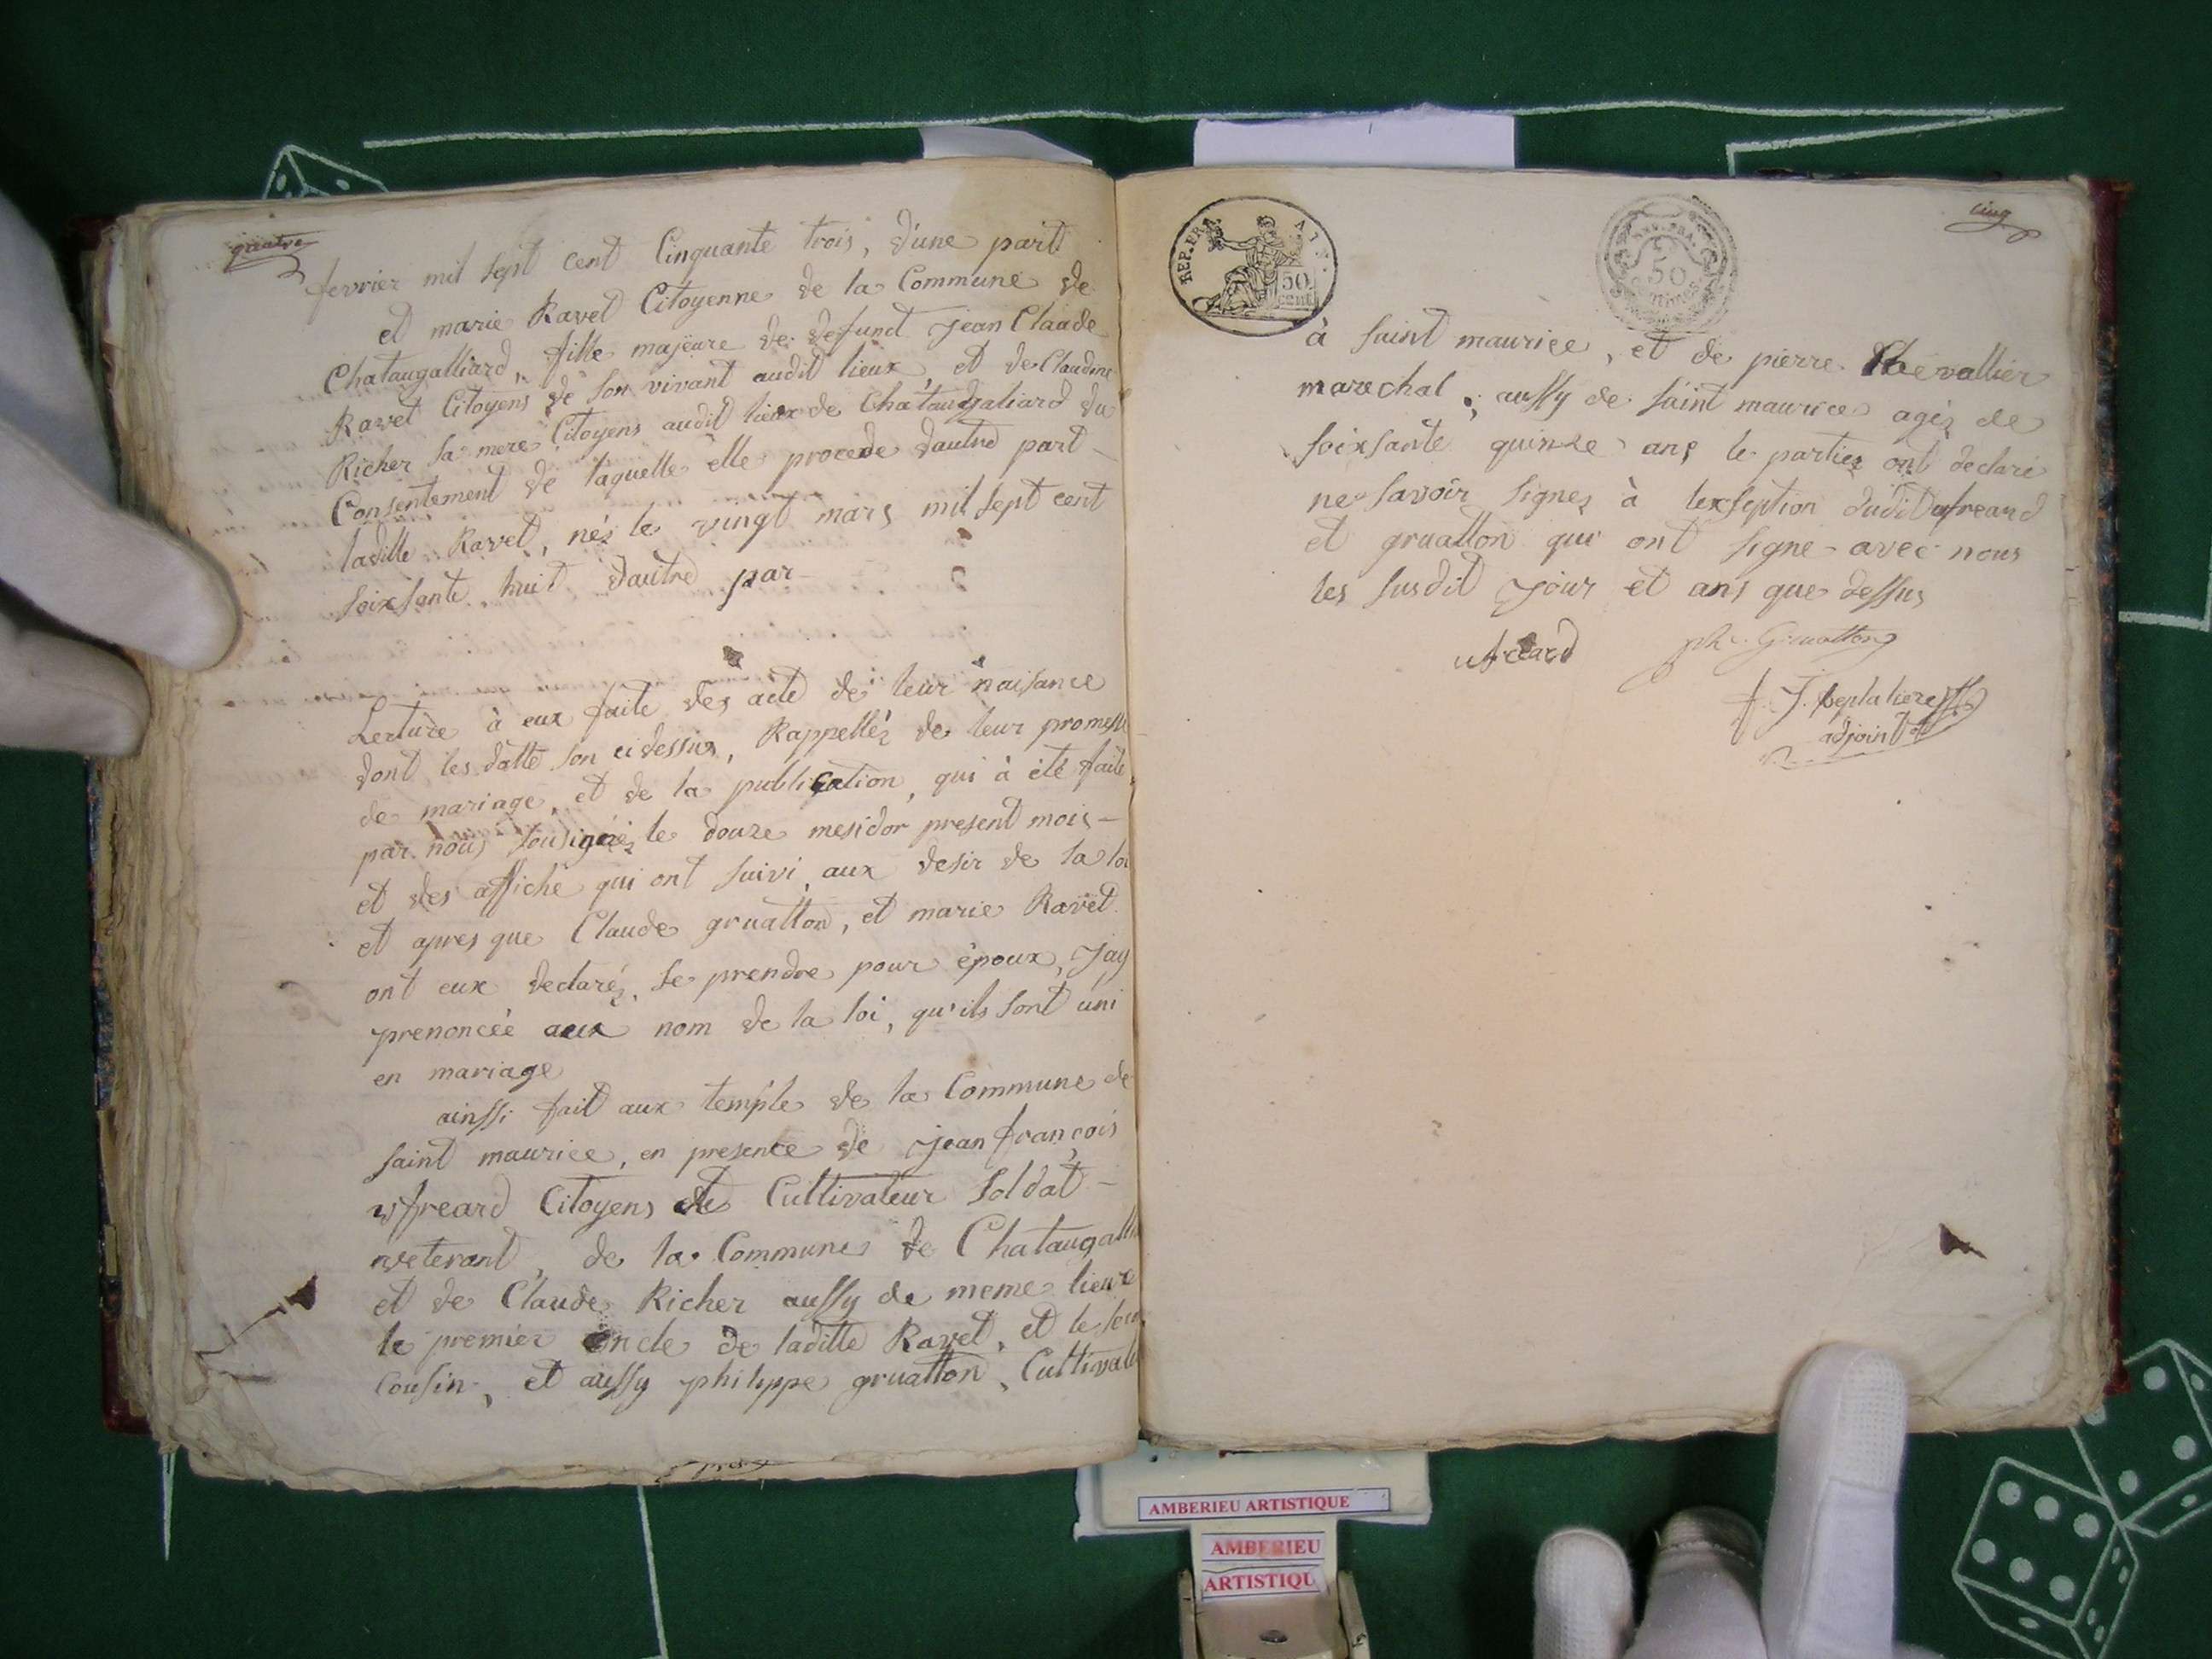 quatre
fevrier mil sept cent Cinquante trois, d'une part
et marie Ravet Citoyenne de la Commune de
Chataugalliard, fille majeure de defunct jean Claude
Ravet Citoyens de son vivant audit lieux, et de Claudine
Richer sa mere Citoyens audit lieux de Chataugaliard du
Consentement de laquelle elle procede dautre part -
laditte Ravet, nés le vingt mars mil sept cent
soixsante huit dautre par -
Lecture à eux faite des acte de leur naisance
dont les datte son cidessus, Rappellés de leur promesse
de mariage, et de la publication, qui à été faite
par nous sousignés le douze mesidor present mois -
et des affiche qui ont suivi aux desir de la loi
et apres que Claude gruatton, et marie Ravet
ont eux declarés, se prendre pour époux, jay
prenoncée aux nom de la loi, qu'ils sont uni
en mariage
ainssi fait aux temple de la Commune de
saint maurice, en presence de jean françois
ufreard Citoyens et Cultivateur soldat -
veterant, de la Communes de Chataugalli
et de Claude Richer aussy de meme lieux
le premier oncle de laditte Ravet, et le
Cousin, et aussy philippe gruatton, Cultivate
REP. FRA. AIN.
50
cent.
50
centimes
cinq
à saint maurice, et de pierre Chevallier
marechal, aussy de saint maurice agés de
soixsante quinze ans le parties ont declaré
ne savoir signez à lexseption dudit ufreard
et gruatton qui ont signe avec nous
les susdit jour et ans que dessus
ufreard ph. Gruatton
J. Beplatiere
adjoint
AMBERIEU ARTISTIQUE
AMBERIEU
ARTISTIQU